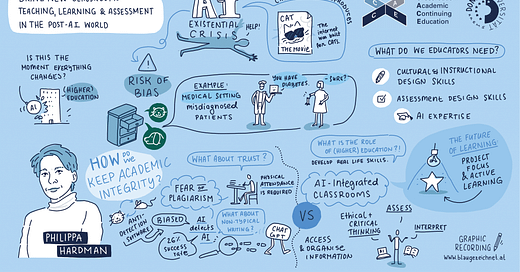 TEACHING, LEARNING & ASSESSMENT
IN THE POST-AI WORLD
IS THIS THE
MOMENT EVERYTHING
CHANGES?
AI
(HIGHER)
EDUCATION
AI
EXISTENTIAL
CRISIS
HELP!
CAT
THE MOVIE
THE
INTERNET
WAS
BUILT
FOR CATS
Academic
Continuing
Education
RISK OF
BIAS
EXAMPLE:
MEDICAL SETTING
MISDIAGNOSED
PATIENTS
YOU HAVE
DIABETES.
SURE?
WHAT DO WE EDUCATORS NEED?
CULTURAL & INSTRUCTIONAL
DESIGN SKILLS
ASSESSMENT DESIGN SKILLS
AI EXPERTISE
HOW DO WE
KEEP ACADEMIC
INTEGRITY?
PHILIPPA
HARDMAN
WHAT ABOUT TRUST?
FEAR OF
PLAGIARISM
PHYSICAL
ATTENDANCE
IS REQUIRED
ANTI-
DETECTION
SOFTWARE
BIASED
AI
DETECTS
AI
26%
SUCCESS
RATE
WHAT ABOUT
NON-TYPICAL
WRITING?
CHAT
GPT
VS
WHAT IS THE ROLE
OF (HIGHER) EDUCATION?!
DEVELOP REAL LIFE SKILLS.
AI-INTEGRATED
CLASSROOMS
ETHICAL +
CRITICAL
THINKING
ASSESS
INTERPRET
ACCESS
& ORGANISE
INFORMATION
THE FUTURE
OF LEARNING
PROJECT
FOCUS
& ACTIVE
LEARNING
GRAPHIC
RECORDING
www.blaugezeichnet.at